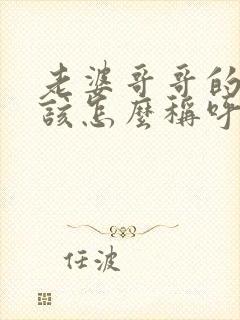 老婆哥哥的
该怎麽稱呼
任波